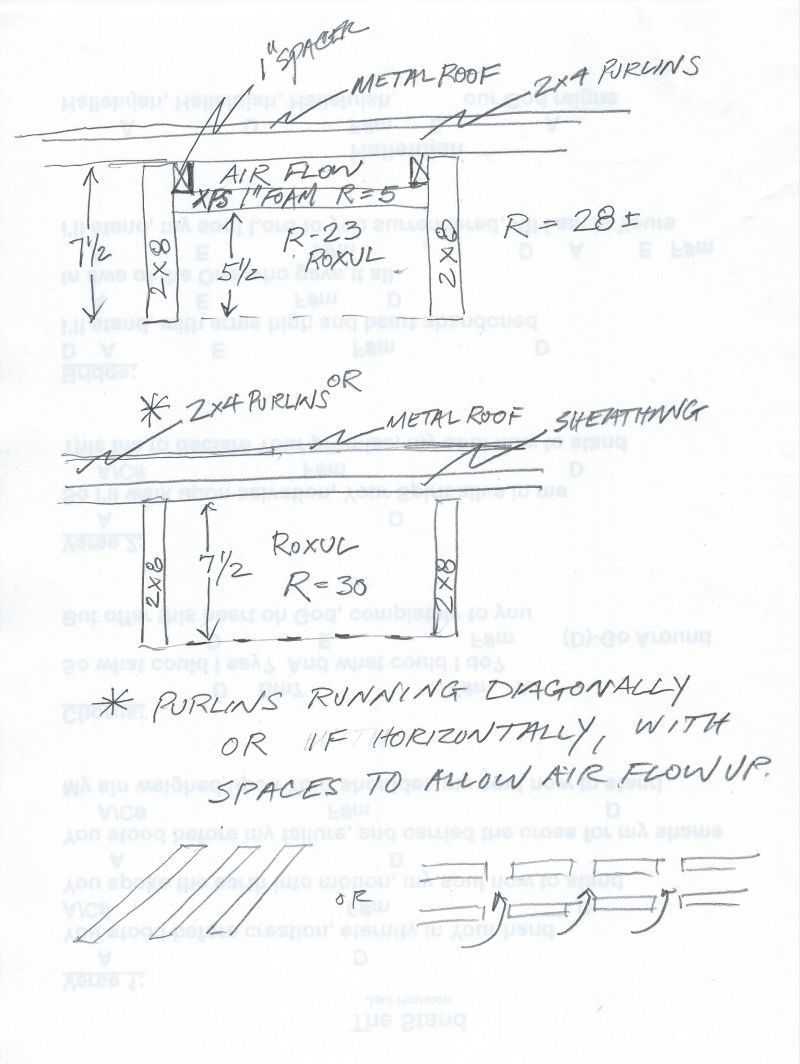 1" SPACER
METAL ROOF
2x4 PURLINS
AIR FLOW
XPS 1" FOAM R=5
7 1/2
2x8
5 1/2
R-23
ROXUL
2x8
R = 28 ±
OR
* 2x4 PURLINS
METAL ROOF
SHEATHING
2x8
7 1/2
ROXUL
R=30
2x8
* PURLINS RUNNING DIAGONALLY
OR IF HORIZONTALLY, WITH
SPACES TO ALLOW AIR FLOW UP.
OR